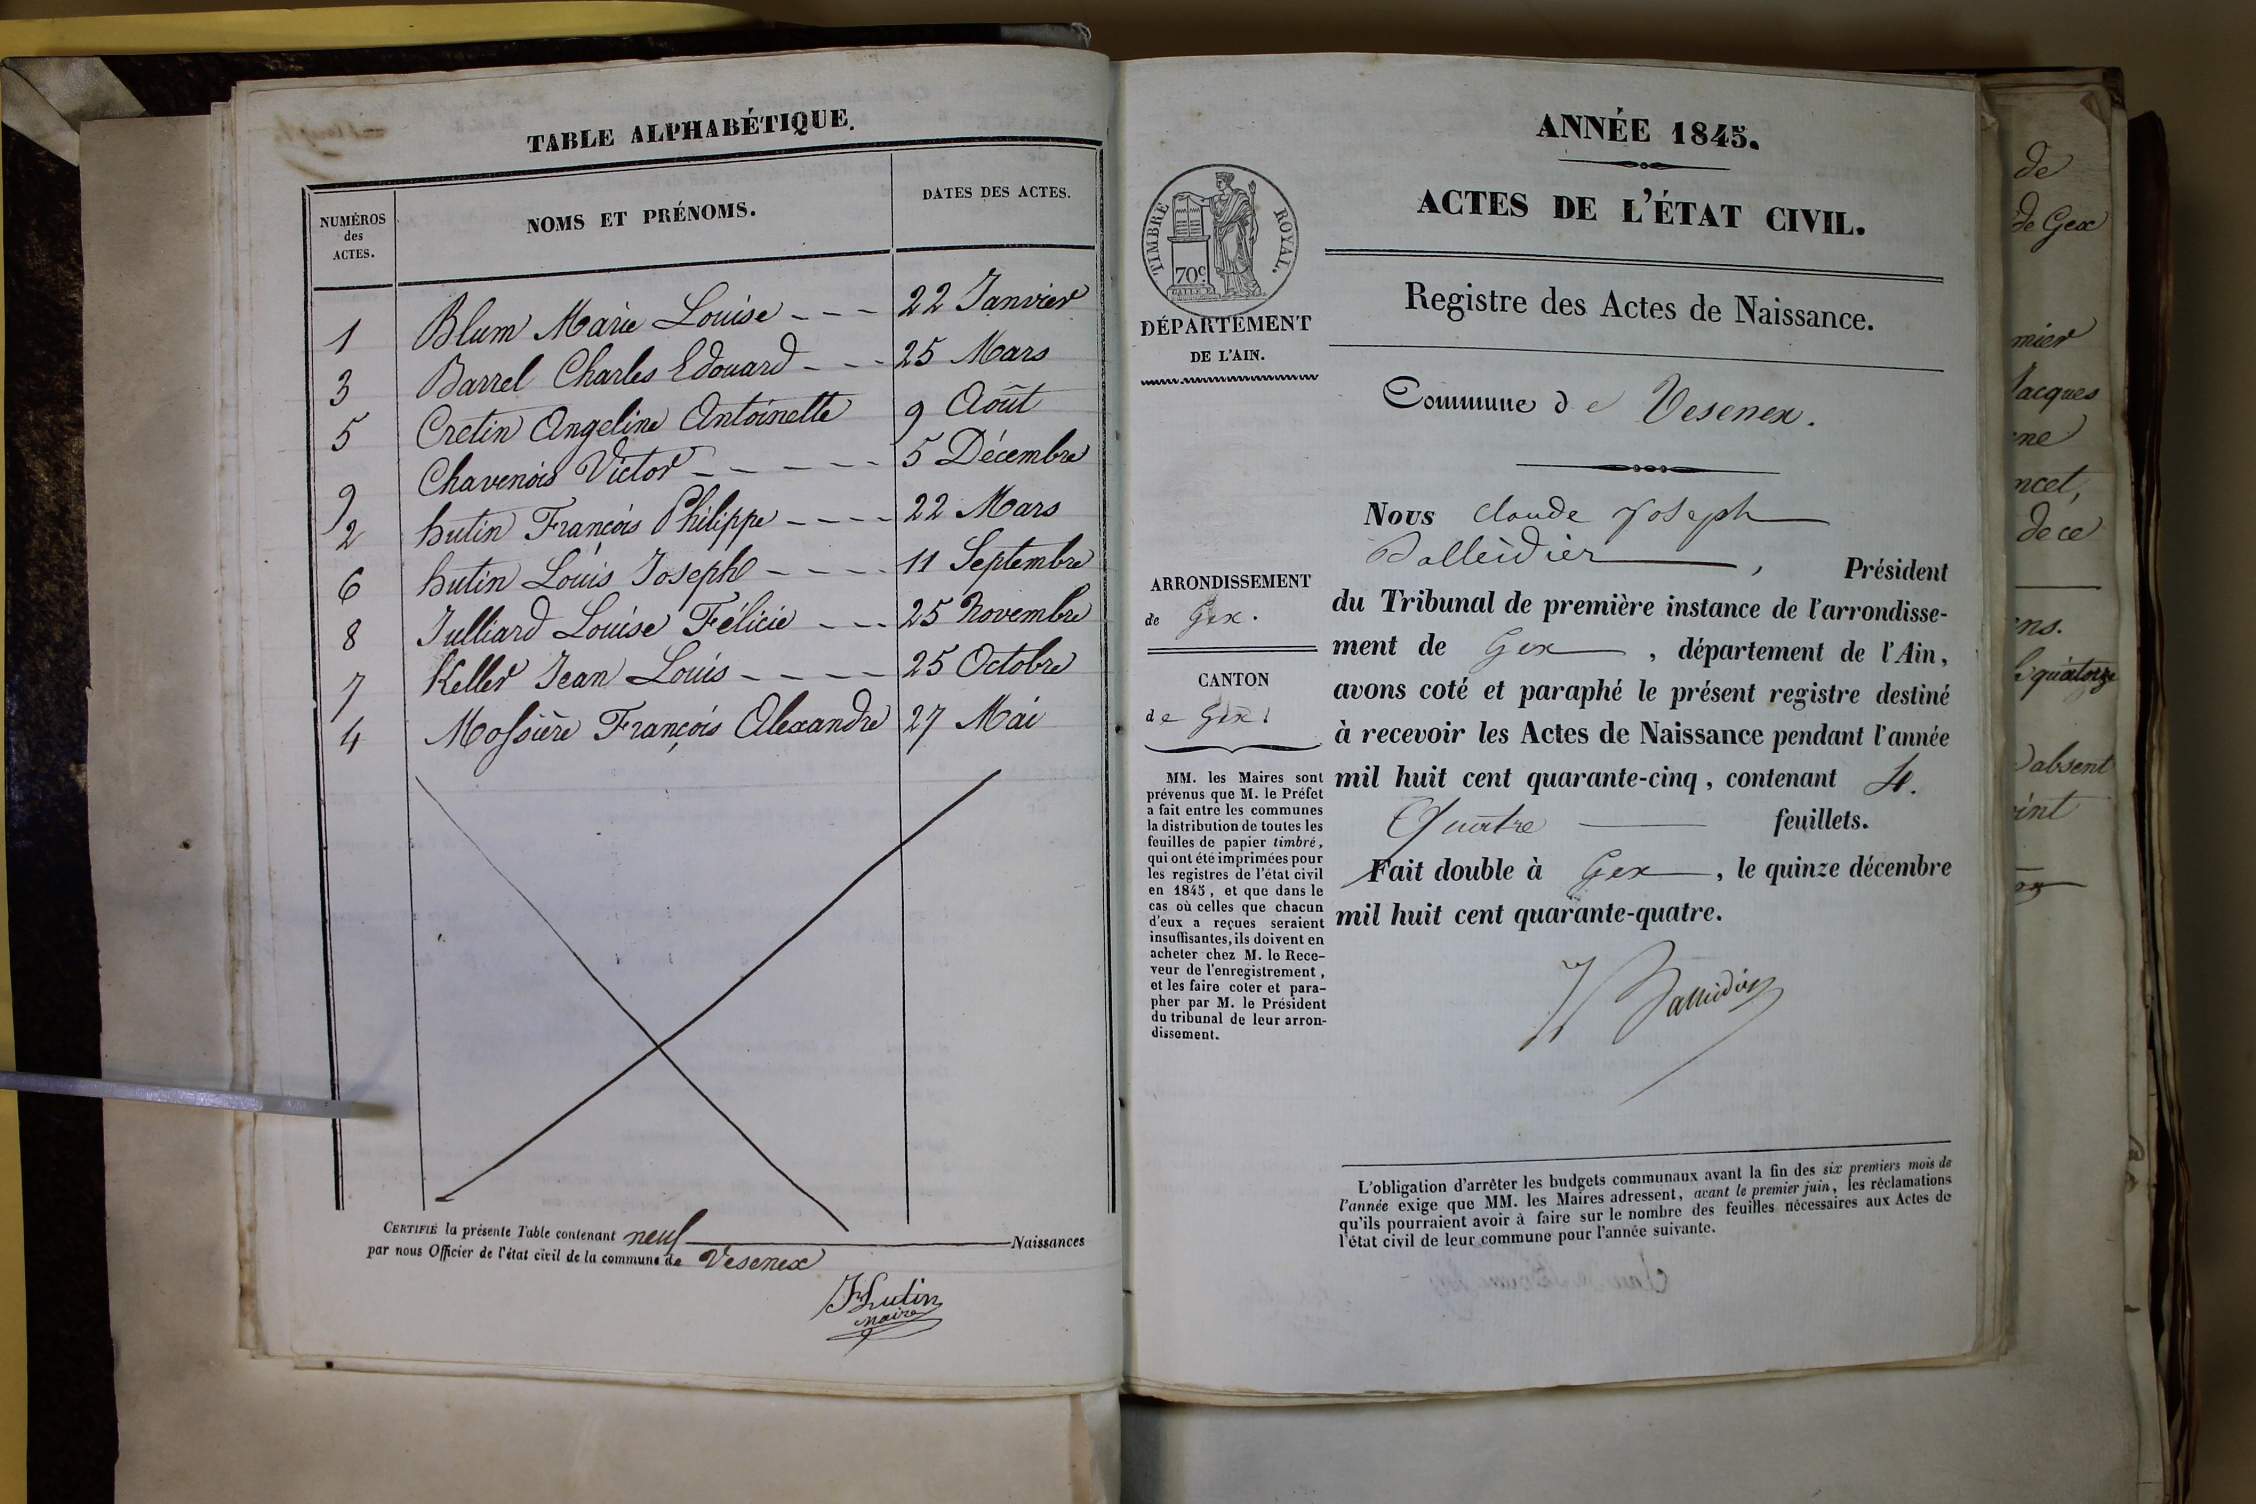 TABLE ALPHABÉTIQUE.
NUMÉROS
des
ACTES.
NOMS ET PRÉNOMS.
DATES DES ACTES.
1 Blum Marie Louise - - - 22 Janvier
3 Barrel Charles Edouard - - - 25 Mars
5 Cretin Angeline Antoinette 9 Août
9 Chavenois Victor - - - - - 5 Décembre
2 hutin François Philippe - - - - 22 Mars
6 hutin Louis Joseph - - - - 11 Septembre
8 Julliard Louise Félicie - - - 25 Novembre
7 Keller Jean Louis - - - - - 25 Octobre
4 Mossière François Alexandre 27 Mai
CERTIFIÉ la présente Table contenant neuf Naissances
par nous Officier de l'état civil de la commune de Vesenex
JHutin
maire
ANNÉE 1845.
ACTES DE L'ÉTAT CIVIL.
TIMBRE ROYAL.
70c
DÉPARTEMENT
DE L'AIN.
Registre des Actes de Naissance.
Commune de Vesenex.
ARRONDISSEMENT
de Gex.
CANTON
de Gex.
MM. les Maires sont
prévenus que M. le Préfet
a fait entre les communes
la distribution de toutes les
feuilles de papier timbré,
qui ont été imprimées pour
les registres de l'état civil
en 1845, et que dans le
cas où celles que chacun
d'eux a reçues seraient
insuffisantes, ils doivent en
acheter chez M. le Rece-
veur de l'enregistrement,
et les faire coter et para-
pher par M. le Président
du tribunal de leur arron-
dissement.
Nous Claude Joseph
Balleidier, Président
du Tribunal de première instance de l'arrondisse-
ment de Gex, département de l'Ain,
avons coté et paraphé le présent registre destiné
à recevoir les Actes de Naissance pendant l'année
mil huit cent quarante-cinq, contenant 4.
Quatre feuillets.
Fait double à Gex, le quinze décembre
mil huit cent quarante-quatre.
Balleidier
L'obligation d'arrêter les budgets communaux avant la fin des six premiers mois de
l'année exige que MM. les Maires adressent, avant le premier juin, les réclamations
qu'ils pourraient avoir à faire sur le nombre des feuilles nécessaires aux Actes de
l'état civil de leur commune pour l'année suivante.
de
de Gex
mier
Jacques
ne
ncet,
de ce
ens.
quatorze
absent